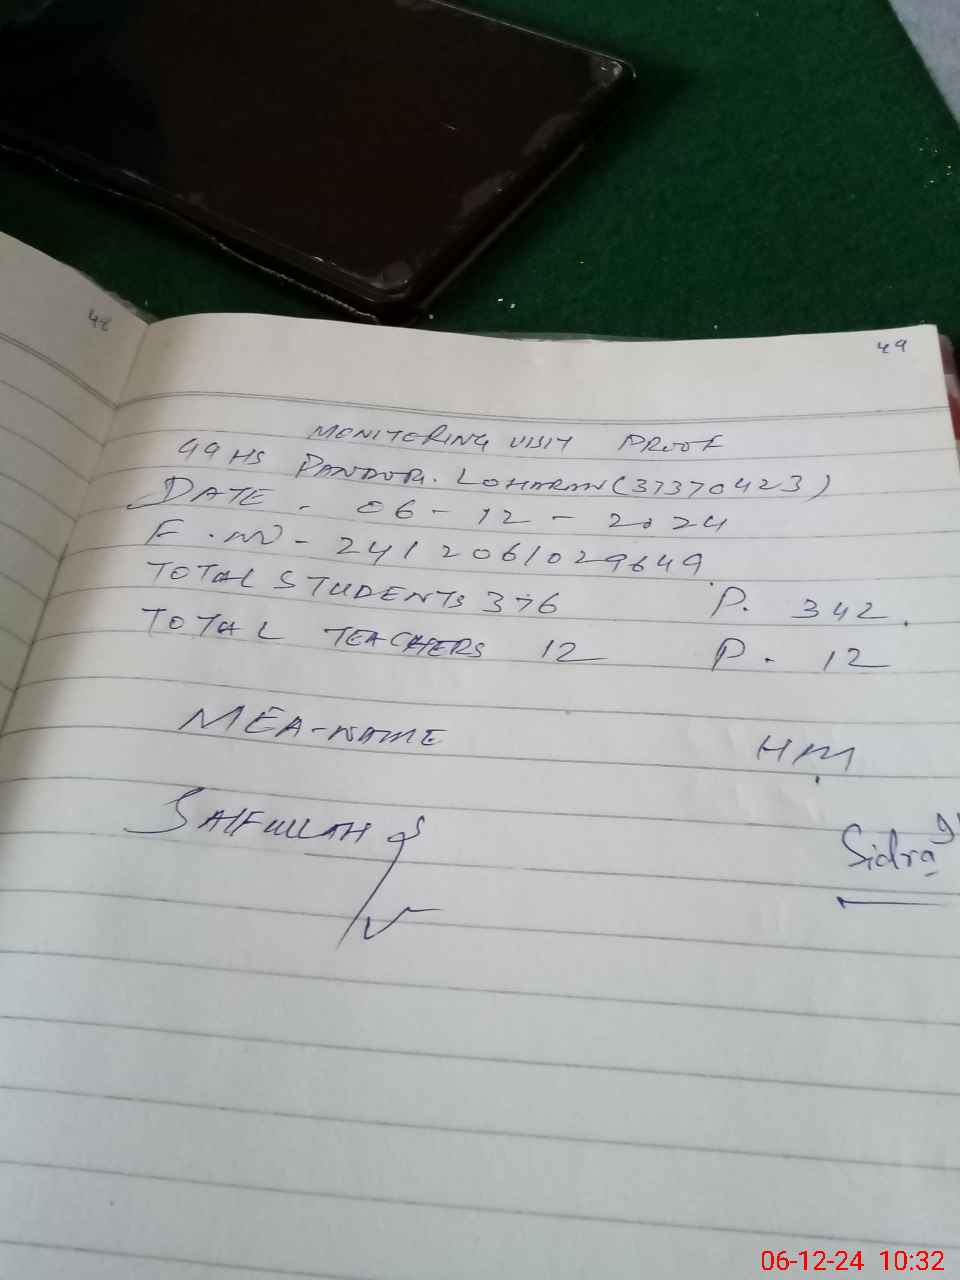 48
49
MONITORING VISIT PROOF
GGHS PANDORI. LOHARAN (37370423)
DATE - 06-12-2024
F.NO - 2412061029649
TOTAL STUDENTS 376 P. 342.
TOTAL TEACHERS 12 P. 12
MEA-NAME HM
SAIFULLAH
Sidra
06-12-24 10:32